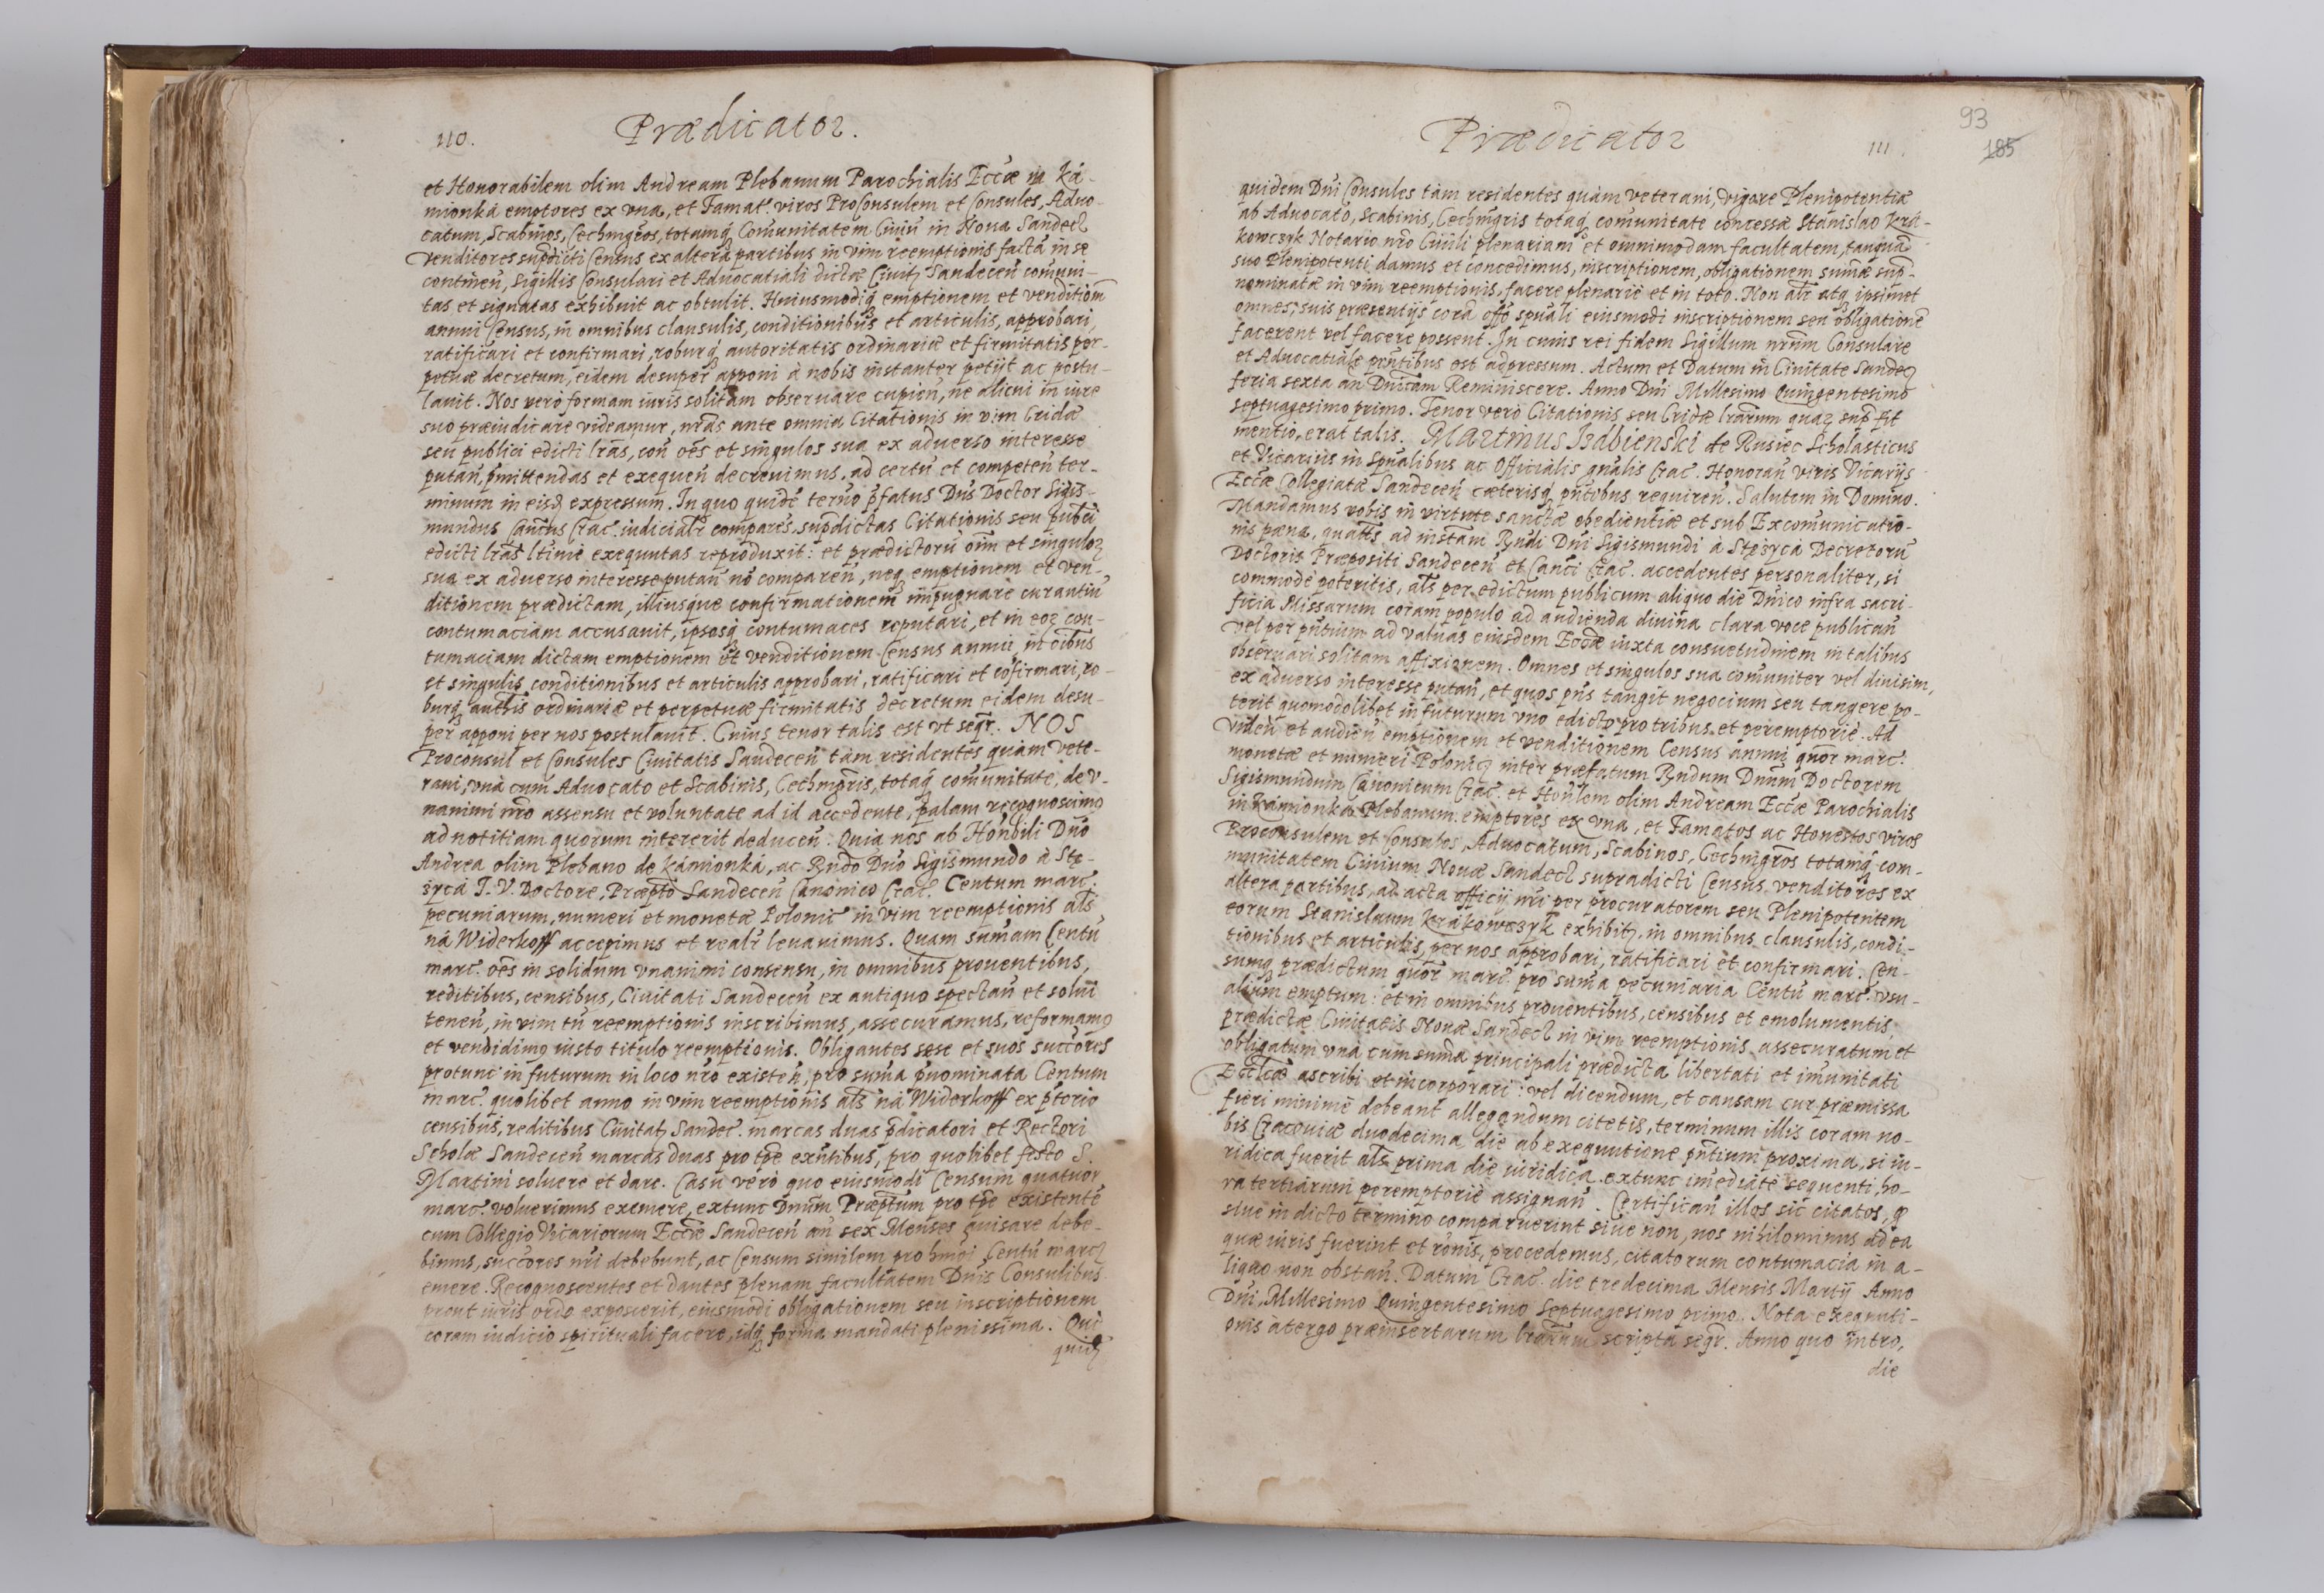 110.
Prædicator.
et Honorabilem olim Andream Plebanum Parochialis Eccæ in Ká-
mionká emptores ex vna, et Famat. viros ProConsulem et Consules, Aduo-
catum, Scabinos, Cechmgros, totamq Comunitatem Ciuiu in Noua Sandecz
venditores supdicti Census ex altera partibus in vim reemptionis factá in se
continen, Sigillis Consulari et Aduocatiali dictæ Ciuitz Sandecen comuni-
tas et signatas exhibuit ac obtulit. Huiusmodiq emptionem et venditiom
annui Census, in omnibus clausulis, conditionibus et articulis, approbari,
ratificari et confirmari, roburq autoritatis ordinariæ et firmitatis per-
petuæ decretum, eidem desuper apponi à nobis instanter petijt ac postu-
lauit. Nos verò formam iuris solitam obseruare cupien, ne alicui in iure
suo præiudicare videamur, nras ante omnia Citationis in vim Cridæ
seu publici edicti lras, con oes et singulos sua ex aduerso interesse
putan, pmittendas et exequen decreuimus, ad certu et competen ter-
minum in eisd expressum. In quo quidē termo pfatus Dns Doctor Sigis-
mundus Cancus Crac. iudicialr compares, supdictas Citationis seu publci
edicti lras ltimè exequutas reproduxit: et prædictoru oim et singuloz
sua ex aduerso interesse putan nō comparen, neq emptionem et ven-
ditionem prædictam, illiusque confirmationem impugnare curantiu
contumaciam accusauit, ipsosq contumaces reputari, et in eoz con-
tumaciam dictam emptionem et venditionem Census annui in oibus
et singulis conditionibus et articulis approbari, ratificari et cōfirmari, ro-
burq authis ordinariæ et perpetuæ firmitatis decretum eidem desu-
per apponi per nos postulauit. Cuius tenor talis est vt seqr. NOS
Proconsul et Consules Ciuitatis Sandecen tàm residentes quàm vete-
rani, vnà cum Aduocato et Scabinis, Cechmgris, totaq comunitate, de v-
nanimi nro assensu et voluntate ad id accedente, palam recognoscimo
ad notitiam quorum intererit deducen: Quia nos ab Honbili Dno
Andrea olim Plebano de Kámionká, ac Rndo Dno Sigismundo à Stę-
zycá I. V. Doctore, Præpto Sandecen Canonico Crac. Centum marc.
pecuniarum, numeri et monetæ Polonic in vim reemptionis als
ná Widerkoff accepimus et realr leuauimus. Quam sumam Centu
marc. oes in solidum vnanimi consensu, in omnibus prouentibus,
reditibus, censibus, Ciuitati Sandecen ex antiquo spectan et solui
tenen, in vim tn reemptionis inscribimus, assecuramus, reformamo
et vendidimo iusto titulo reemptionis. Obligantes sese et suos succores
protunc in futurum in loco nro existen, pro suma pnominata Centum
marc. quolibet anno in vim reemptionis als ná Widerkoff ex ptorio
censibus, reditibus Ciuitatz Sandec. marcas duas pdicatori et Rectori
Scholæ Sandecen marcas duas pro tpe exntibus, pro quolibet festo S.
Martini soluere et dare. Casu verò quo eiusmodi Censum quatuor
marc. voluerimus eximere, extunc Dnum Præptum pro tpe existentē
cum Collegio Vicariorum Eccæ Sandecen an sex Menses auisare debe-
bimus, succores nri debebunt, ac Censum similem pro hmoi Centu marcz
emere. Recognoscentes et dantes plenam facultatem Dnis Consulibus
prout iuris ordo exposcerit, eiusmodi obligationem seu inscriptionem
coram iudicio spirituali facere, idq forma mandati plenissima. Qui
quidz
Prædicator
111.
93
185
quidem Dni Consules tàm residentes quàm veterani, vigore Plenipotentiæ
ab Aduocato, Scabinis, Cechmgris totaq comunitate concessæ Stanislao Krá-
kowczyk Notario nro Ciuili plenariam et omnimodam facultatem, tanquā
suo Plenipotenti damus et concedimus, inscriptionem, obligationem sumæ sup-
nominatæ in vim reemptionis, facere plenariè et in toto. Non alr atq ipsimet
omnes, suis præsentijs corā offo spuali eiusmodi inscriptionem seu obligationē
facerent vel facere possent. In cuius rei fidem Sigillum nrum Consulare
et Aduocatiale pntibus est adpressum. Actum et Datum in Ciuitate Sandecz
feria sexta an Dnicam Reminiscere. Anno Dni Millesimo Quingentesimo
septuagesimo primo. Tenor verò Citationis seu Cridæ lrarum quaz sup fit
mentio, erat talis. Martinus Izdbienski de Rusiec Scholasticus
et Vicarius in Spualibus ac Officialis gnalis Crac. Honoran viris Vicarijs
Eccæ Collegiatæ Sandecen cæterisq pntibus requiren. Salutem in Domino.
Mandamus vobis in virtute sanctæ obedientiæ et sub Excomunicatio-
nis pæna, quatts ad instam Rndi Dni Sigismundi à Stęzycá Decretoru
Doctoris Præpositi Sandecen et Canci Crac. accedentes personaliter, si
commodè poteritis, als per edictum publicum aliquo die Dnico infra sacri-
ficia Missarum coram populo ad audienda diuina clara voce publican
vel per pntium ad valuas eiusdem Eccæ iuxta consuetudinem in talibus
obseruari solitam affixionem. Omnes et singulos sua comuniter vel diuisim,
ex aduerso interesse putan, et quos pns tangit negocium seu tangere po-
terit quomodolibet in futurum vno edicto pro tribus et peremptoriè. Ad
viden et audien emptionem et venditionem Census annui quor marc.
monetæ et numeri Polonicz inter præfatum Rndum Dnum Doctorem
Sigismundum Canonicum Crac. et Honlem olim Andream Eccæ Parochialis
in Kámionká Plebanum emptores ex vna, et Famatos ac Honestos viros
Proconsulem et Consules, Aduocatum, Scabinos, Cechmgros totamq com-
munitatem Ciuium Nouæ Sandecz supradicti Census venditores ex
altera partibus, ad acta officij nri per procuratorem seu Plenipotentem
eorum Stanislaum Krákowczyk exhibitz, in omnibus clausulis, condi-
tionibus et articulis, per nos approbari, ratificari et confirmari. Cen-
sumq prædictum quor marc. pro suma pecuniaria Centu marc. vsu-
alium emptum: et in omnibus prouentibus, censibus et emolumentis
prædictæ Ciuitatis Nouæ Sandecz in vim reemptionis assecuratum et
obligatum vnà cum suma principali prædicta libertati et imunitati
Ecclcæ ascribi et incorporari: vel dicendum, et causam cur præmissa
fieri minimè debeant allegandum citetis, terminum illis coram no-
bis Cracouiæ duodecima die ab exequutione pntium proxima, si iu-
ridica fuerit als prima die iuridica extunc imediatè sequenti, ho-
ra tertiarum peremptoriè assignan. Certifican illos sic citatos, q
siue in dicto termino comparuerint siue non, nos nihilominus ad ea
quæ iuris fuerint et ronis, procedemus, citatorum contumacia in a-
liquo non obstan. Datum Crac. die tredecima Mensis Martij Anno
Dni, Millesimo Quingentesimo Septuagesimo primo. Nota exequuti-
onis àtergo præinsertarum lrarum scripta seqr. Anno quo intro,
die